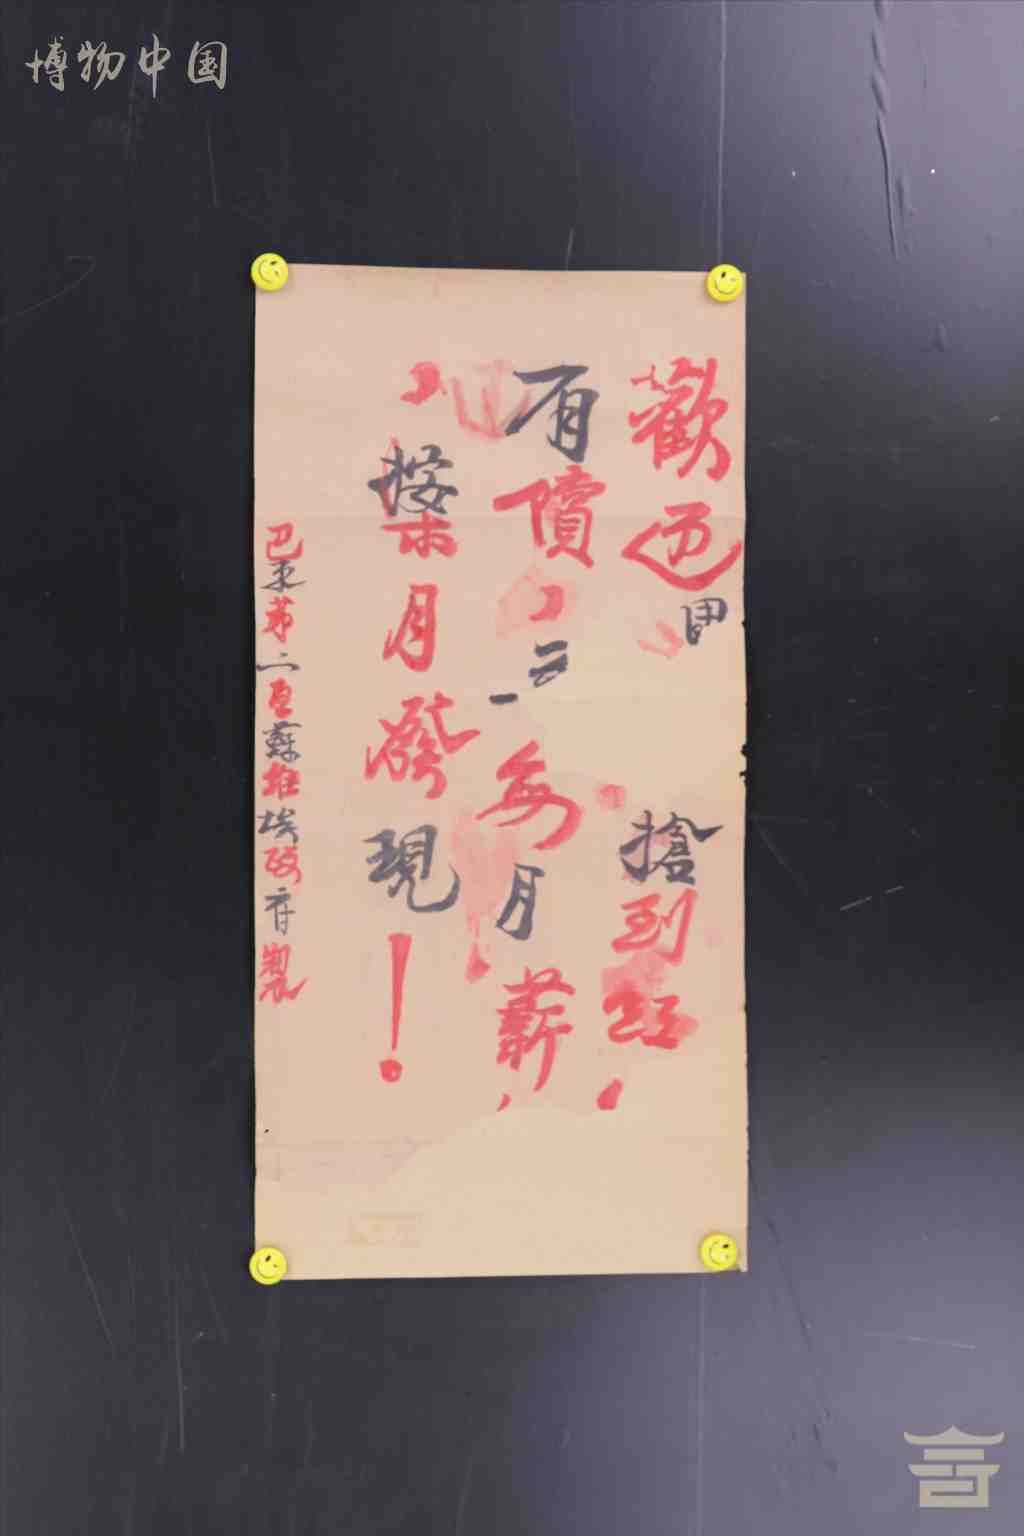 博物中国
歡迎甲
搶到紅,
有價
二
一
每月薪,
按月發現!
巴東第二区蘇維埃政府製